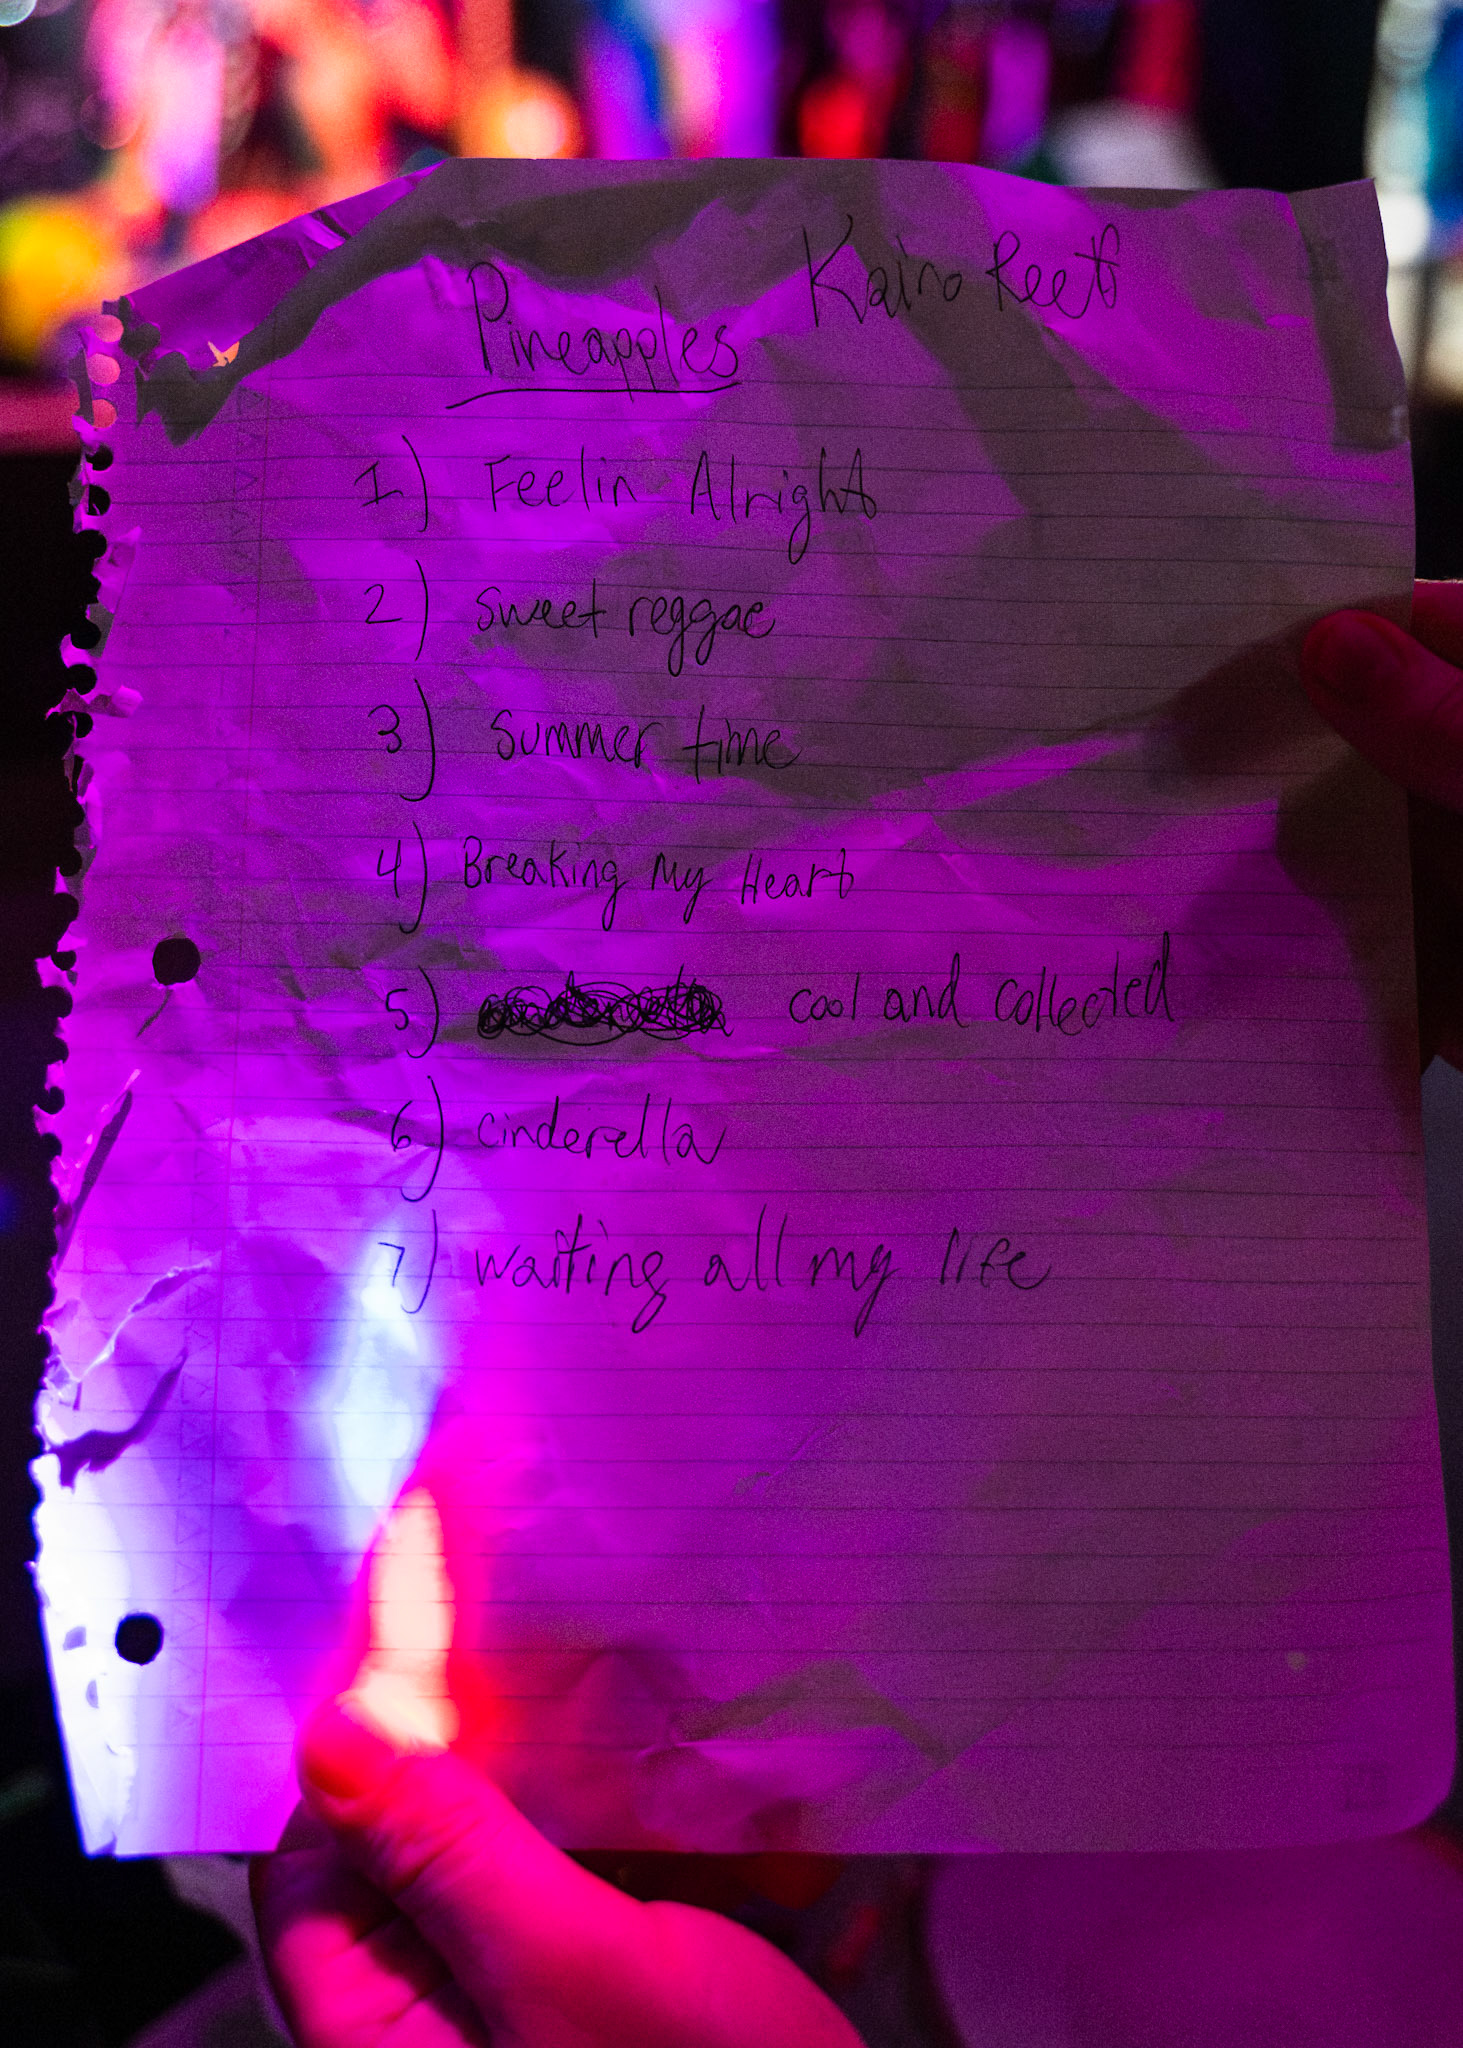 Kairo Reef
Pineapples
1) Feelin Alright
2) sweet reggae
3) summer time
4) Breaking My Heart
5) cool and collected
6) cinderella
7) waiting all my life